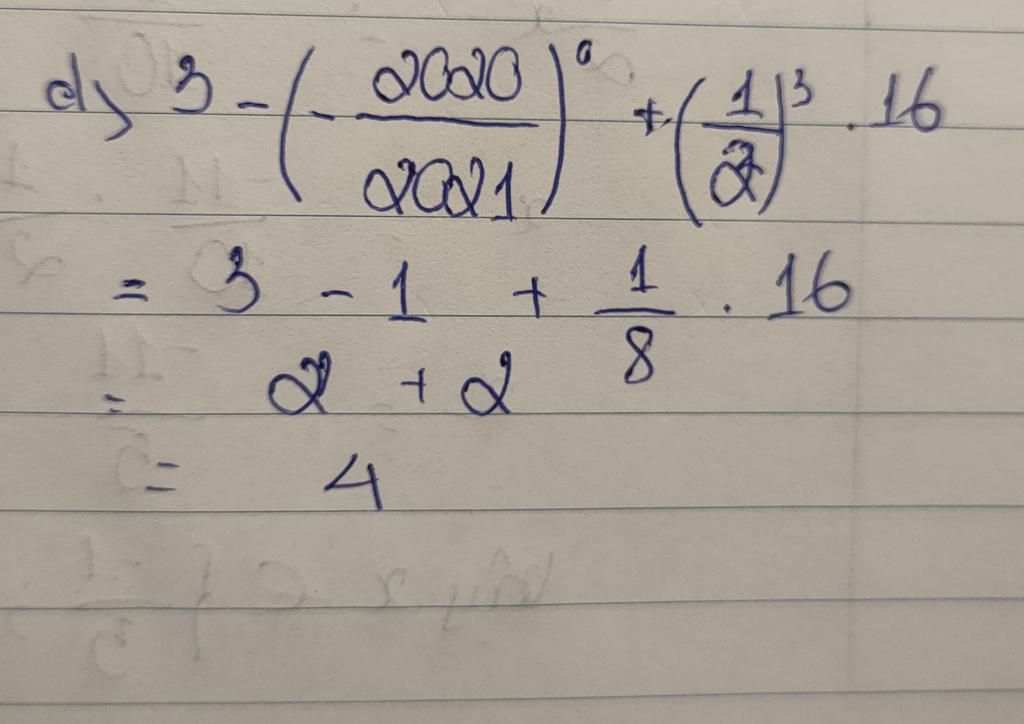 d) 3 - (- 2020/2021)⁰ + (1/2)³ . 16
= 3 - 1 + 1/8 . 16
= 2 + 2
= 4